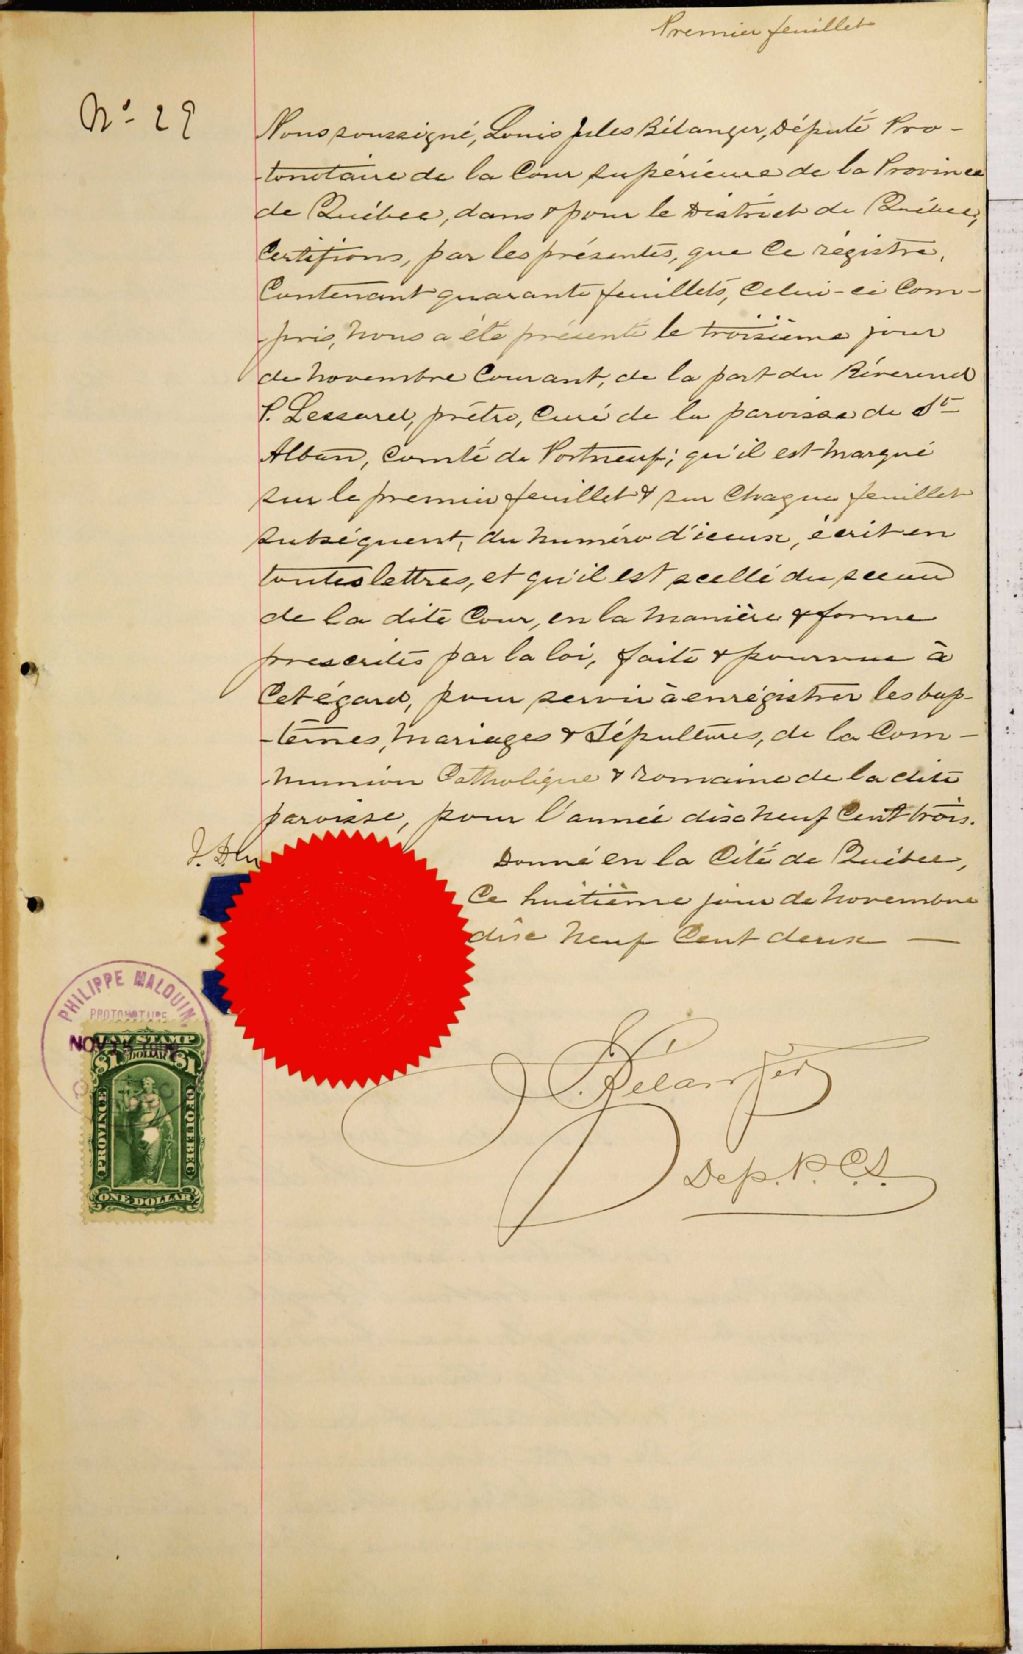 Premier feuillet
No. 29
Nous soussigné, Louis Jules Bélanger, Député Pro-
-tonotaire de la Cour supérieure de la Province
de Québec, dans & pour le District de Québec,
Certifions, par les présentes, que Ce régistre,
Contenant quarante feuillets, Celui-ci Com-
-pris, nous a été présenté le troisième jour
de novembre Courant, de la part du Révérend
P. Lessard, prêtre, Curé de la paroisse de St
Alban, Comté de Portneuf; qu'il est marqué
sur le premier feuillet & sur Chaque feuillet
subséquent, du numéro d'iceux, écrit en
toutes lettres, et qu'il est scellé du sceau
de la dite Cour, en la manière & forme
prescrites par la loi, faite & pourvue à
Cet égard, pour servir à enrégistrer les bap-
-têmes, Mariages & Sépultures, de la Com-
-munion Catholique & romaine de la dite
paroisse, pour l'année dix neuf Cent trois.
Donné en la Cité de Québec,
Ce huitième jour de novembre
dix neuf Cent deux —
PHILIPPE MALOUIN,
PROTONOTAIRE
NOV
LAW STAMP
$1 DOLLAR $1
PROVINCE OF QUEBEC
ONE DOLLAR
J. Bélanger
Dep. P. C. S.